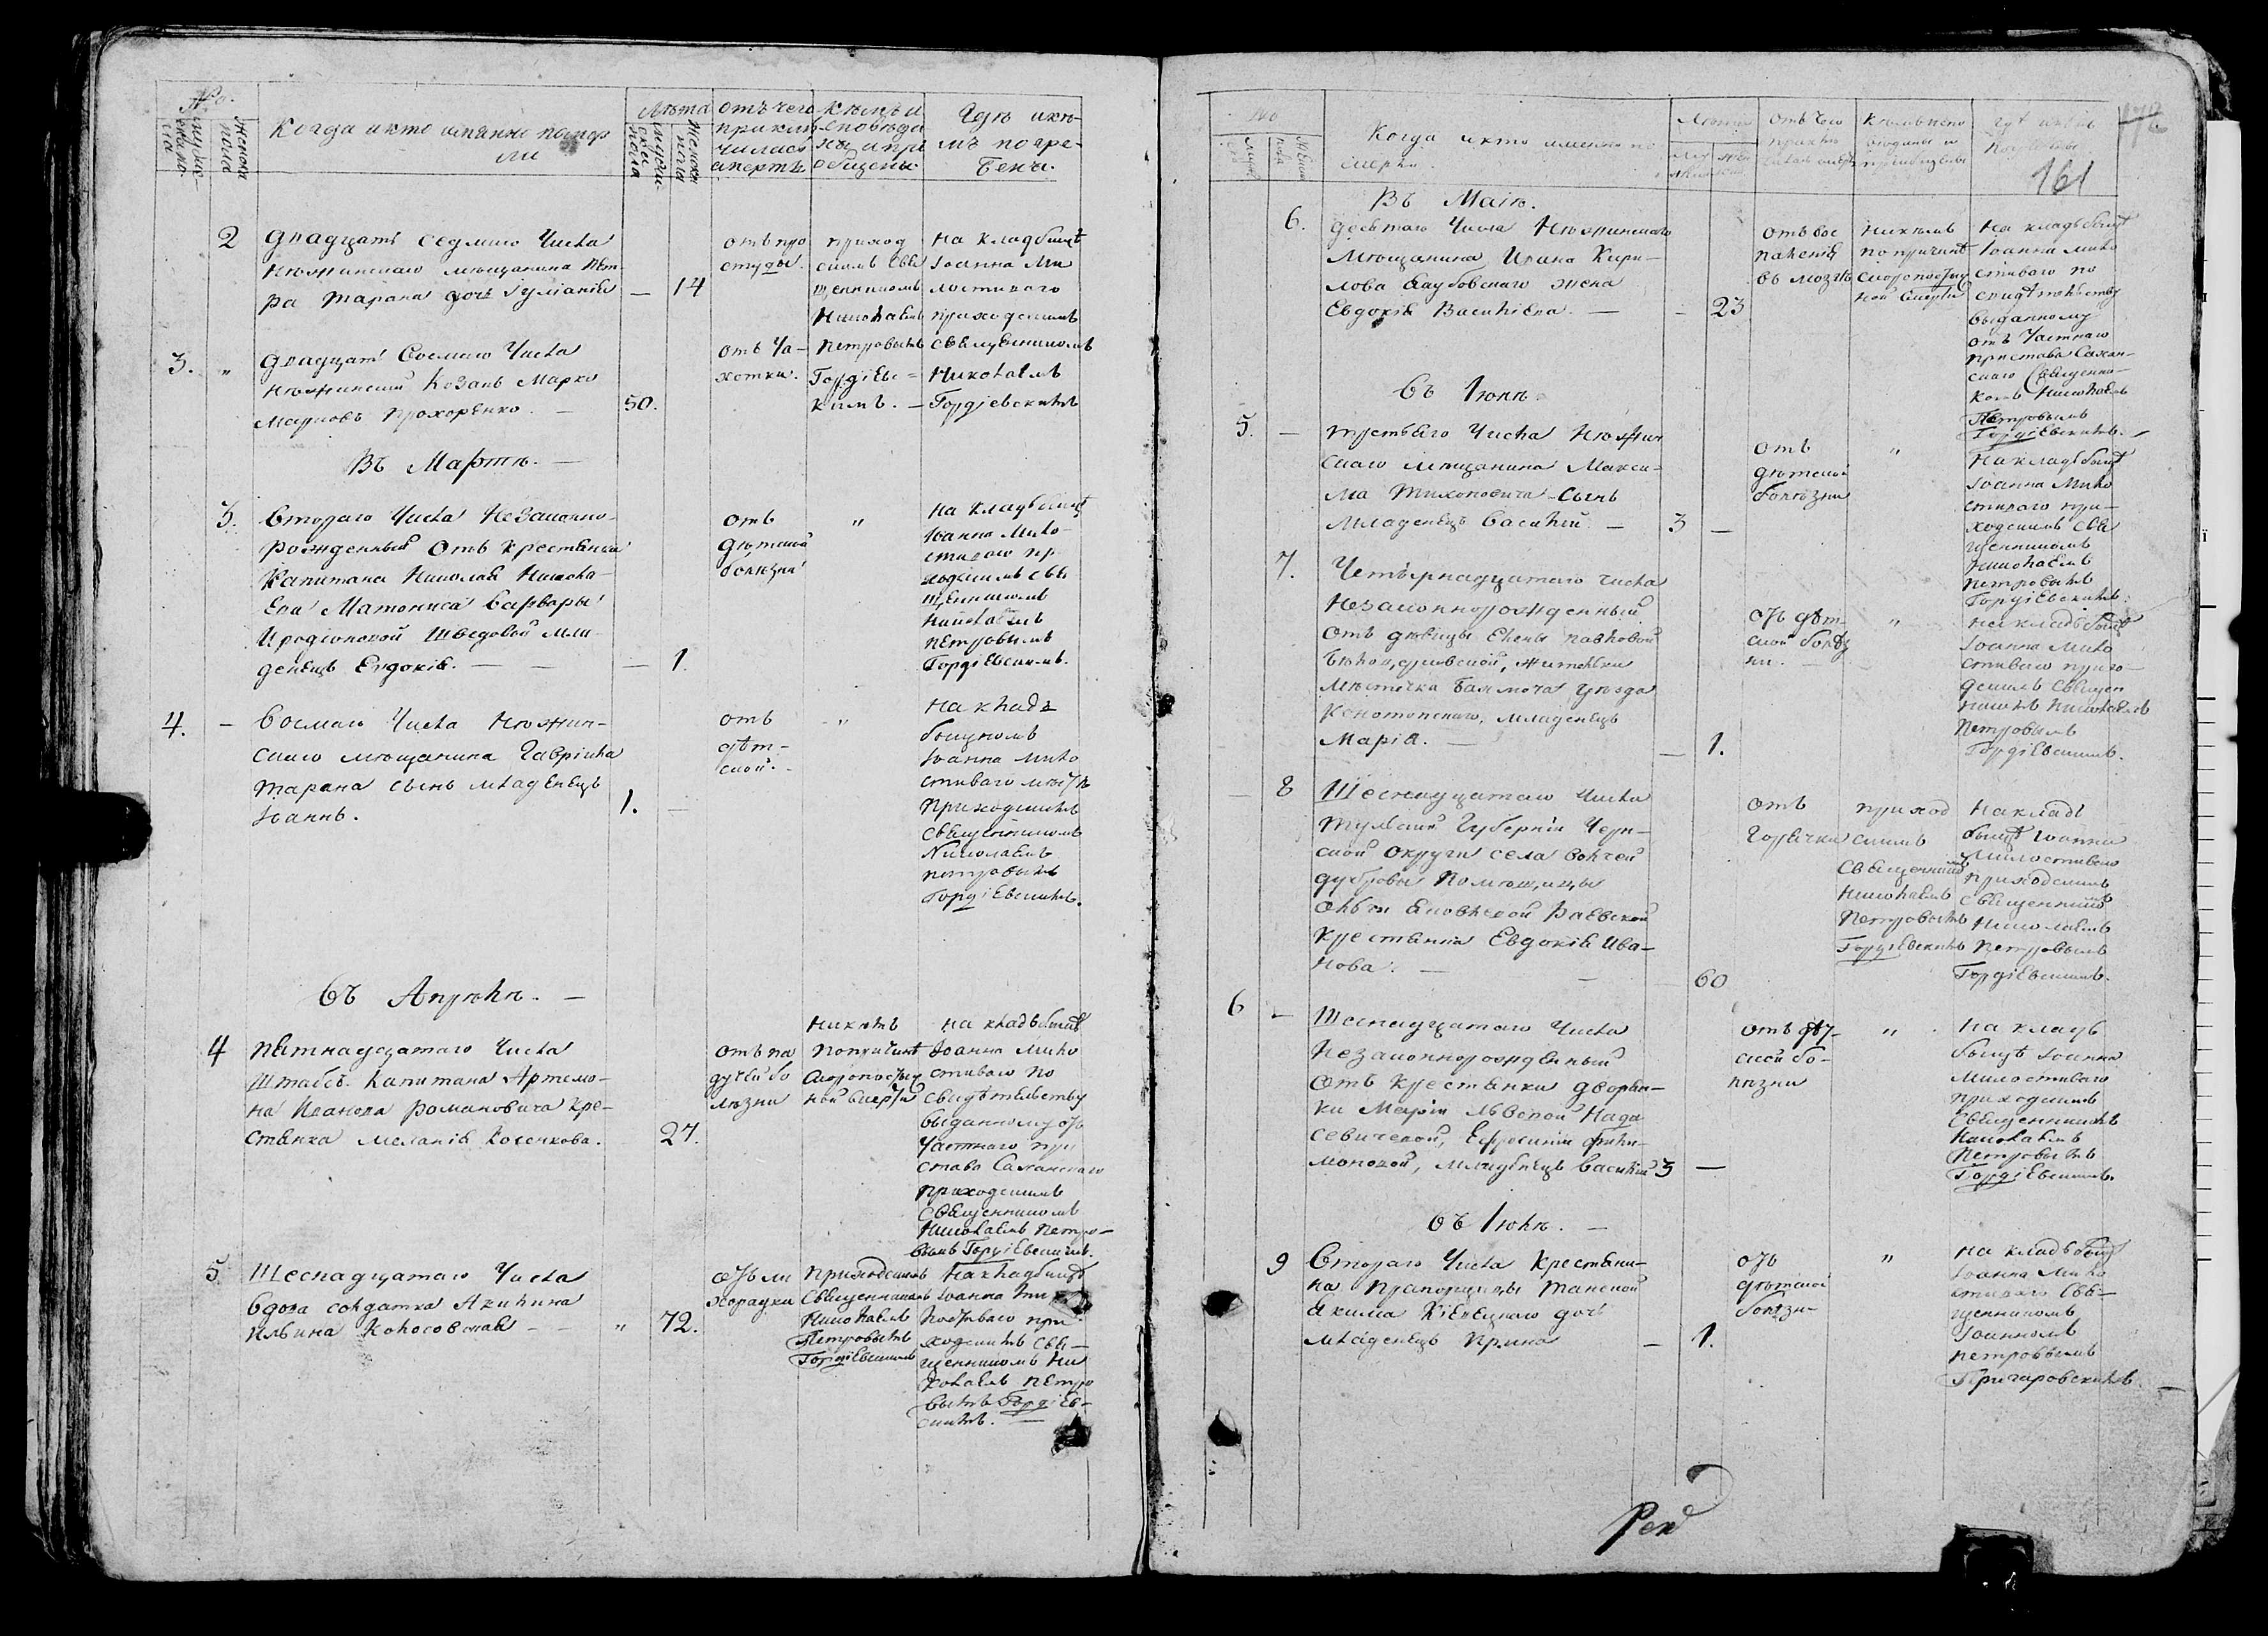 №
мужес
ска
Женска
пола
Когда и кто имянно помер
ли
Лѣта
Мужеска
пола
Женска
пола
отъ чего
приклю
чилась
смерть
Кѣмъ и
споведа
ны и при
общены
Гдѣ и кѣ
мъ погре
бены.
2
Двадцать седмаго Числа
Нѣжинскаго мѣщанина Пет
ра Тарана дочь
—
14
отъ про
студы.
приход
скимъ Свя
щенникомъ
Николаемъ
Петровымъ
Гордіевс=
кимъ. —
На кладбищѣ
Іоанна Ми
лостиваго
приходскимъ
Священникомъ
Николаемъ
Гордіевскимъ
3.
"
Двадцать Восмаго Числа
Нѣжинский Козакъ Марко
Марковъ Прохоренко. —
50.
отъ Ча-
хотки.
Въ Мартѣ. —
3.
Втораго Числа Незаконно-
рожденный отъ крестьянки
Капитана Николая Никола-
ева Матониса Варвары
Иродіоновой Шведовой мла-
денецъ Евдокія. — —
—
1.
отъ
дѣтской
болѣзни
"
На кладбищѣ
Іоанна Мило-
стиваго пр
ходскимъ Свя
щенникомъ
Николаемъ
Петровымъ
Гордіевскимъ.
4.
—
Восмаго Числа Нѣжин-
скаго мѣщанина Гавріила
Тарана сынъ младенецъ
Іоаннъ.
1.
—
отъ
дѣт-
ской.
"
На кладъ
бищномъ
Іоанна Мило
стиваго мѣстѣ
Приходскимъ
Священникомъ
Николаемъ
Петровымъ
Гордіевскимъ.
Въ Апрѣлѣ. —
4
Пятнадцатаго Числа
Штабсъ. Капитана Артемо-
на Иванова Романовича Кре-
стьянка Меланія Косенкова.
27.
отъ па
дучей бо
лѣзни
Никѣмъ
попричинѣ
скоропостиж
ной Смерти
На кладъбищѣ
Іоанна Мило
стиваго по
свидѣтельству
выданному отъ
Частнаго при
става Саханскаго
приходскимъ
Священникомъ
Николаемъ Петро-
вымъ Гордіевскимъ.
5
Шеснадцатаго Числа
вдова солдатка Акилина
Ильина Колосовская — —
"
72.
отъ ли
хорадки
Приходскимъ
Священникомъ
Николаемъ
Петровымъ
Гордіевскимъ
На кладбищѣ
Іоанна Ми
лостиваго при
ходскимъ Свя-
щенникомъ Ни
колаемъ Петро
вымъ Гордіев-
скимъ. —
№
Когда и кто именно по
мерли.
161
Въ Маіѣ.
6.
Десятаго Числа Нѣжинскаго
Мѣщанина Ивана Кири-
лова жена
Евдокія Василіева. —
-
23
отъ вос
паленія
въ мозгѣ
Никѣмъ
по причинѣ
скоропостиж
ной Смерти
На кладъбищѣ
Іоанна Мило
стиваго по
свидѣтельству
выданному
отъ Частнаго
пристава Сахан-
скаго Священно-
комъ Николаемъ
Петровымъ
Гордіевскимъ. —
Въ Іюнѣ.
5.
—
третьяго Числа Нѣжин
скаго мѣщанина Макси-
ма Тихоновича Сынъ
Младенецъ Василій. —
3
—
отъ
дѣтской
болѣзни
"
На кладъбищѣ
Іоанна Мило
стиваго при-
ходскимъ Свя
щенникомъ
Николаемъ
Петровымъ
Гордіевскимъ.
7.
Четырнадцатаго числа
Незаконнорожденный
отъ дѣвицы Елены Павловой
жительки
Мѣстечка Бахмача уѣзда
Конотопскаго, младенецъ
Марія. —
—
1.
отъ дѣт-
ской болѣз
ни.
"
на кладъбищѣ
Іоанна Мило
стиваго прихо-
дскимъ Священ
никомъ Николаемъ
Петровымъ
Гордіевскимъ.
—
8
Шеснацатаго числа
Тульской Губерніи Черн-
ской округи села Волчей
дубровы Помѣщицы
Ольги Яковлевой Раевской
Крестьянка Евдокія Ива-
нова. —
—
60
отъ
Горячки
приход
скимъ
Священником
Николаемъ
Петровымъ
Гордіевскимъ
На кладъ
бищѣ Іоанна
Милостиваго
приходскимъ
священником
Николаемъ
Петровымъ
Гордіевскимъ.
6
—
Шеснадцатаго Числа
Незаконнорожденный
отъ Крестьянки дворян-
ки Маріи Львовой
Ефросиніи Фили-
моновой, младенецъ Василій
3
—
отъ дѣт-
ской бо-
лѣзни
"
На кладъ
бищѣ Іоанна
Милостиваго
приходскимъ
Священникомъ
Николаемъ
Петровымъ
Гордіевскимъ.
Въ Іюлѣ. —
9
Втораго Числа Крестьяни-
на Прапорщицы Танской
Акима дочь
младенецъ Ирина
—
1.
отъ
дѣтской
болѣзни
"
На кладъбищѣ
Іоанна Мило
стиваго Свя-
щенникомъ
Іоанномъ
Петровымъ
Григоровскимъ.